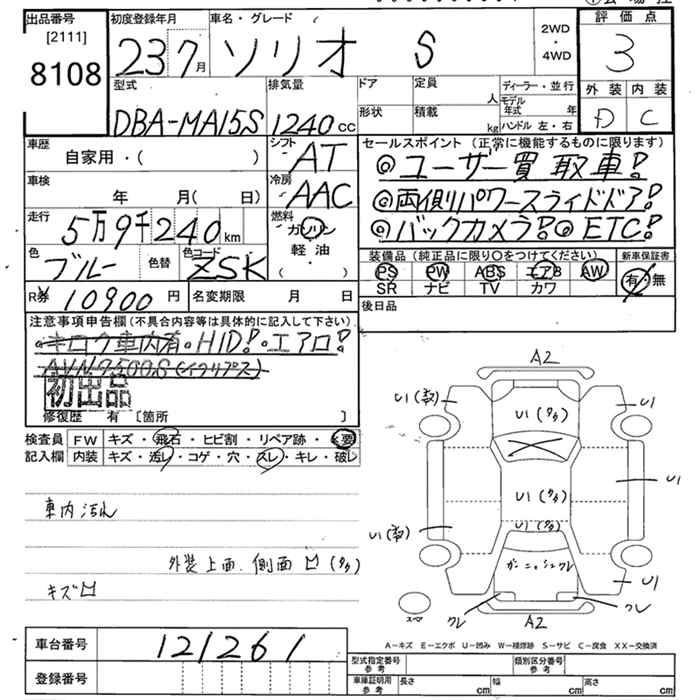 出品番号
[2111]
8108
初度登録年月
23 7月
車名・グレード
ソリオ S
2WD
・
4WD
評価点
3
外装 内装
D C
型式
DBA-MA15S
排気量
1240 cc
ドア
形状
定員
人
積載
kg
ディーラー・並行
モデル年式 年
ハンドル 左・右
車歴
自家用・( )
シフト
AT
冷房
AAC
車検
年 月( 日)
走行
5万9千240 km
燃料
ガソリン
・
軽油
( )
色
ブルー
色替
色コード
ZSK
R券
¥10900円
名変期限 月 日
セールスポイント (正常に機能するものに限ります)
◎ユーザー買取車!
◎両側パワースライドドア!
◎バックカメラ!◎ETC!
装備品 (純正品に限り○をつけてください)
PS PW ABS エアB AW
SR ナビ TV カワ
新車保証書
有・無
後日品
注意事項申告欄 (不具合内容等は具体的に記入して下さい)
・キロク車内有・HID!・エアロ!
初出品
修復歴 有 [箇所 ]
検査員
記入欄
FW キズ・飛石・ヒビ割・リペア跡・要
内装 キズ・汚レ・コゲ・穴・スレ・キレ・破レ
車内汚れ
外装上面、側面凹(多)
キズ凹
A2
U1
U1(多)
U1
U1(多)
U1
U1(多)
U1
クレ
クレ
A2
A-キズ E-エクボ U-凹み W-補修跡 S-サビ C-腐食 XX-交換済
車台番号
121261
登録番号
型式指定番号
参考
類別区分番号
参考
車庫証明用
参考
長さ cm 幅 cm 高さ cm